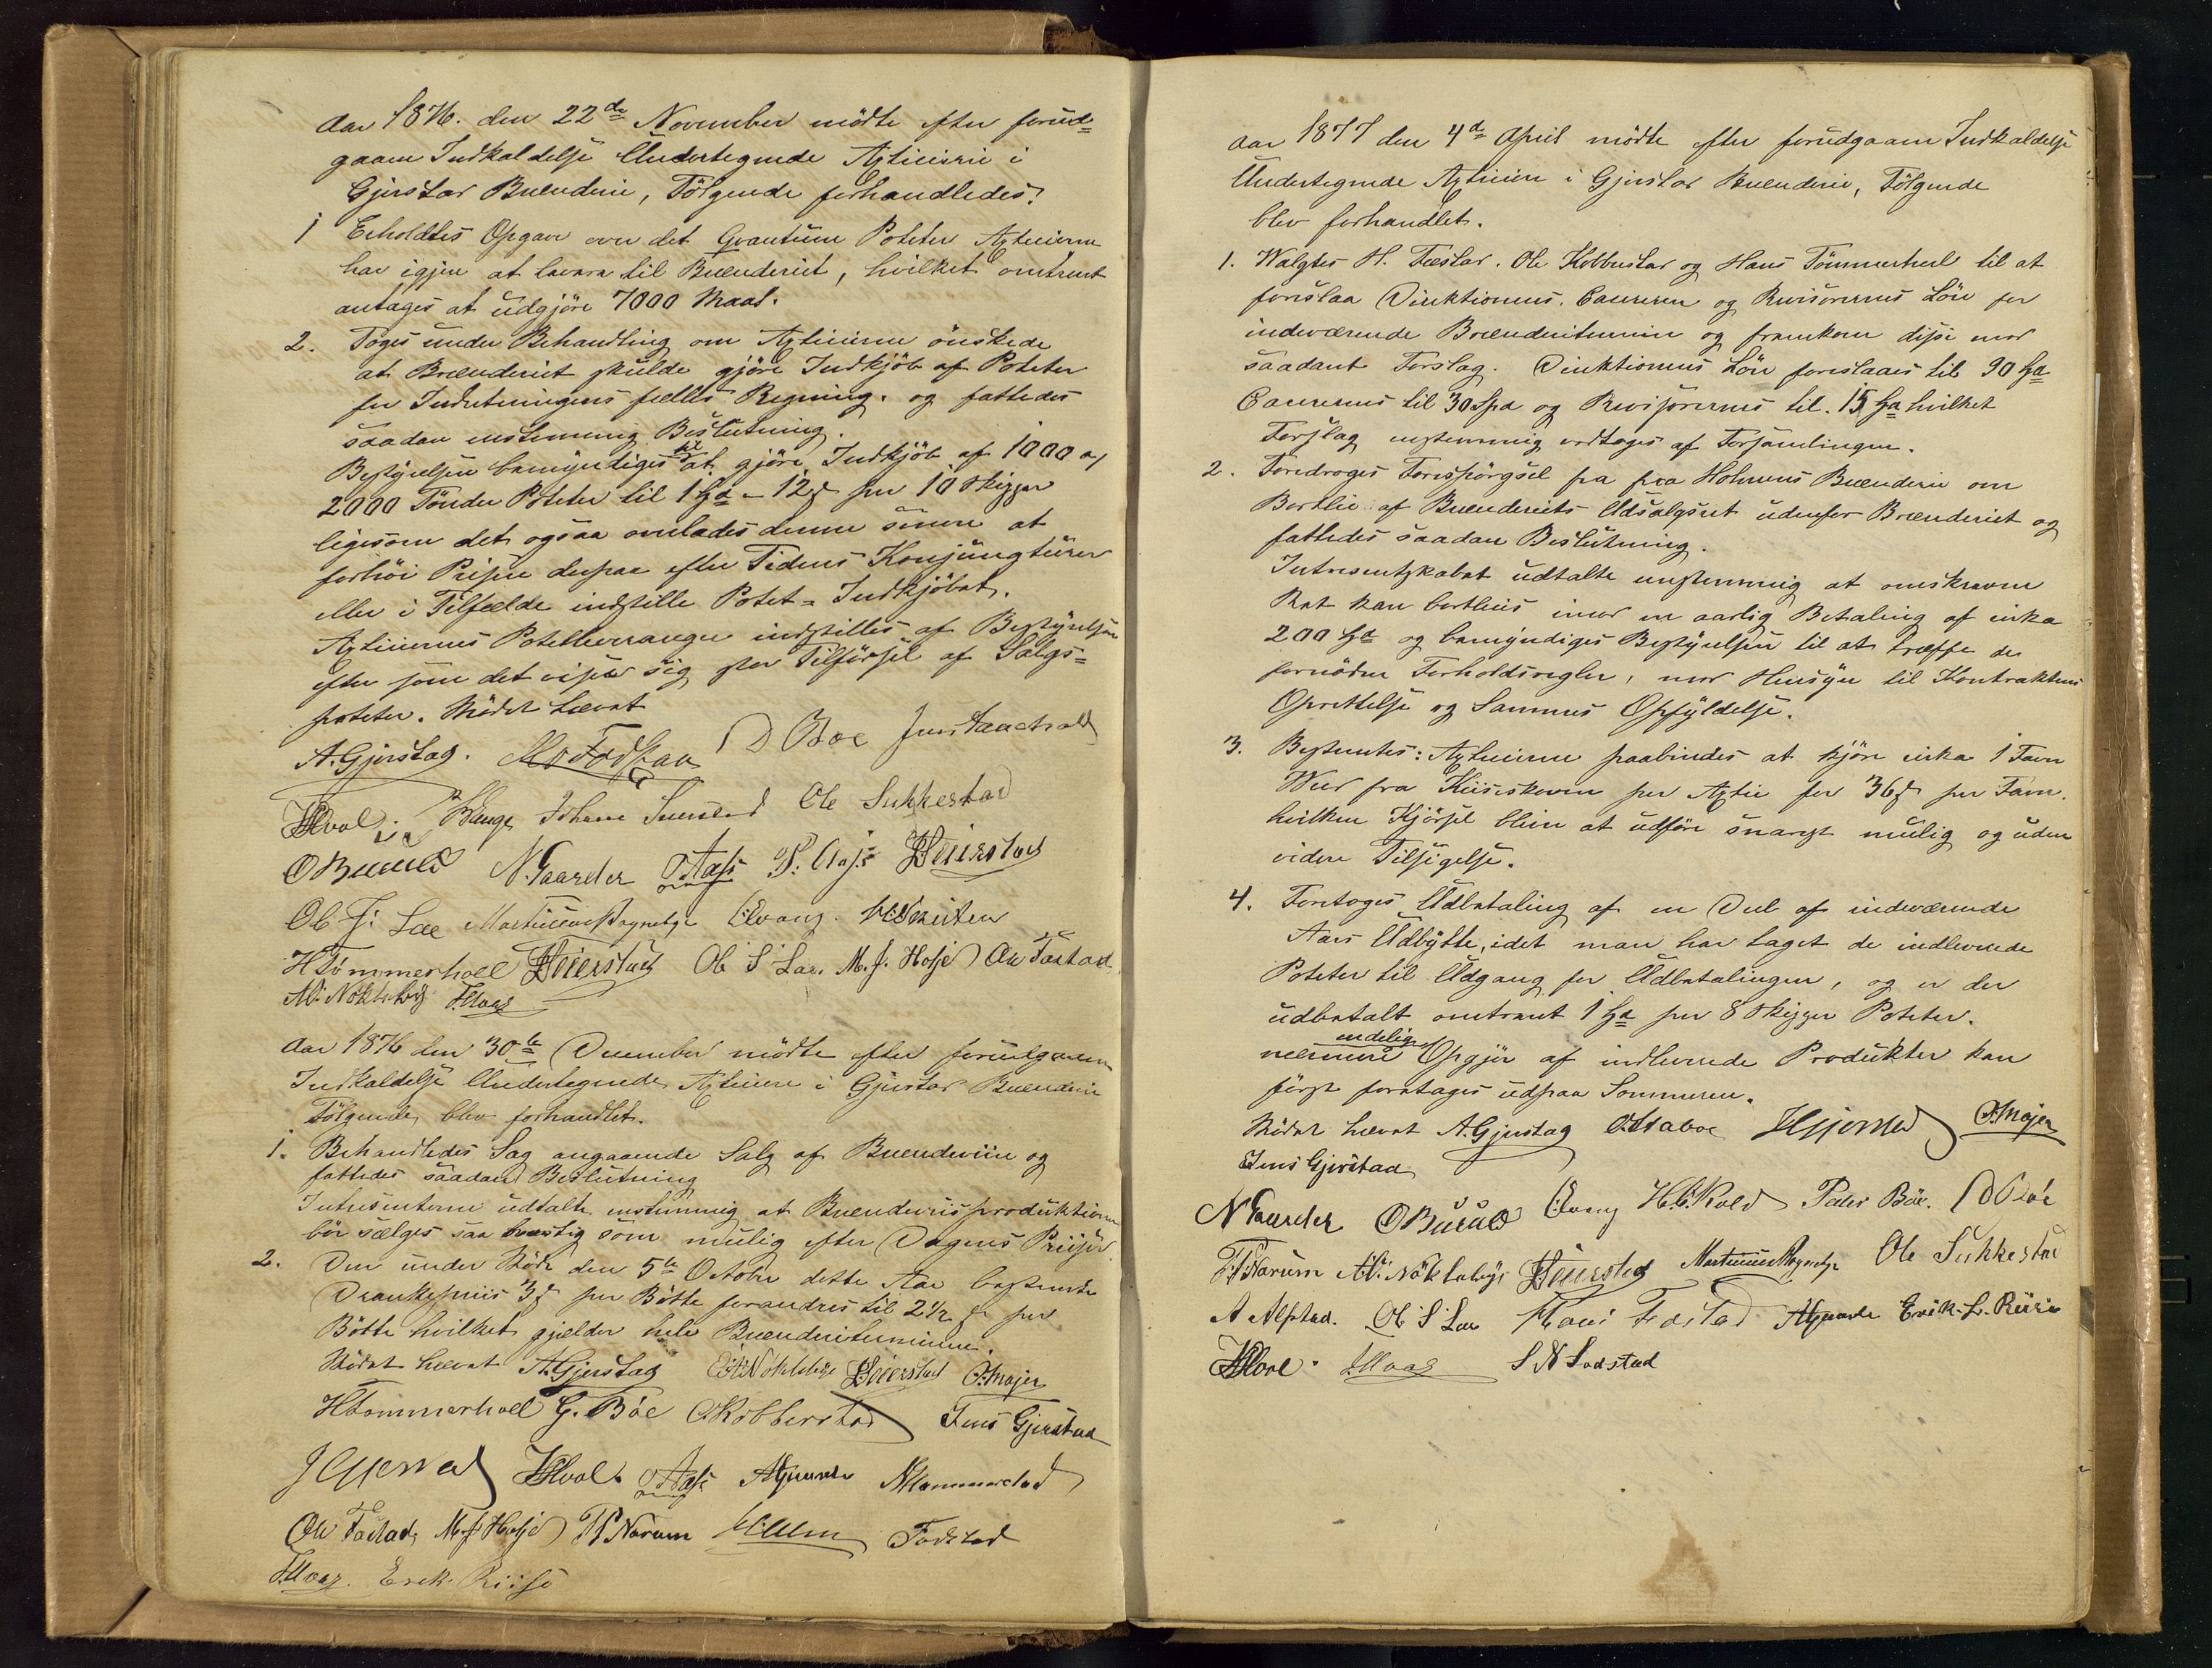 Aar 1876. den 22de November mödte efter forud-
gaaen Indkaldelse Undertegnede Axtieiere i
Gjerstad Brænderie, Fölgende forhandledes:
1 Erholdtes Opgave over det Qvantum Poteter Axtieierne
har igjen at levere til Brænderiet, hvilket omtrent
antages at udgjöre 7000 Maal.
2. Toges under Behandling om Axtieierne önskede
at Brænderiet skulde gjöre Indkjöb af Poteter
for Indretningens fælles Regning. og fattedes
saadan enstemmig Beslutning.
Bestyrelsen bemyndiges til at gjöre Indkjöb af 1000 a
2000 Tönder Poteter til 1 Spd - 12 s per 10 Skjepper
ligesom det ogsaa overlades denne senere at
forhöie Prisen derpaa efter Tidens Konjungturer
eller i Tilfælde indstille Potet-Indkjöbet.
Axtieiernes Potetleverancer indstilles af Bestyrelsen
efter som det viser sig stor Tilförsel af Salgs-
poteter. Mödet hævet
A. Gjerstad. D Böe
Hvol. Ole Sukkestad
O Bururd N. Gaarder O Aas P. Aas Heierstad
Ole J. Lae Martinius Røgneby Evang
H Tömmerhoel Heierstad Ole S Lae. M. J. Hofse Ole Fastad
M. Nökleby
Aar 1876 den 30te December mödte efter forudgaaen
Indkaldelse Undertegnede Axtieiere i Gjerstad Brænderie
Fölgende blev forhandlet.
1. Behandledes Sag angaaende Salg af Brændeviin og
fattedes saadan Beslutning
Intresenterne udtalte enstemmig at Brænderiets produktion
bör sælges saa hurtig som mulig efter Dagens Priser
2. Den under Möde den 5te October dette Aar bestemte
Drankepriis 3 s per Bötte forandres til 2 1/2 s per
Bötte hvilket gjælder hele Brænderiterminen.
Mödet hævet A. Gjerstad Nökleby Heierstad
H Tömmerhoel G. Böe O Kobberstad Jens Gjerstad
Hvol. O Aas N Hammerstad
Ole Fastad M. J. Hofse Narum Fodstad
Erek. Riise
Aar 1877 den 4de April mödte efter forudgaaen Indkaldelse
Undertegnede Axtieiere i Gjerstad Brænderie, Fölgende
blev forhandlet.
1. Walgtes H. Fæstad. Ole Kobberstad og Hans Tömmerhoel til at
foreslaa Direktionens. Casereren og Revisorernes Lön for
indeværende Brænderitermin og fremkom disse med
saadant Forslag. Direktionens Lön foreslaaes til 90 Spd
Casererens til 30 Spd og Revisorernes til. 15 Spd hvilket
Forslag enstemmig vedtoges af Forsamlingen.
2. Foredroges Forespörgsel fra fra Holmens Brænderie om
Bortleie af Brænderiets Udsalgsret udenfor Brænderiet og
fattedes saadan Beslutning.
Intresentskabet udtalte enstemmig at omskrevne
Ret kan bortleies imod en aarlig Betaling af cirka
200 Spd og bemyndiges Bestyrelsen til at træffe de
fornödne Forholdsregler, med Hensyn til Kontraktens
Oprettelse og Sammes Opfyldelse.
3. Bestemtes: Axtieierne paabindes at kjöre cirka 1 Favn
Wed fra Kiiseskoven per Axtie for 36 s per Favn.
hvilken Kjörsel bliver at udföre snarest mulig og uden
videre Tilsigelse.
4. Foretoges Udbetaling af en Deel af indeværende
Aars Udbytte, idet man har taget de indleverede
Poteter til Udgang for Udbetalingen, og er der
udbetalt omtrent 1 Spd per 8 Skjepper Poteter.
endelig
nærmere Opgjör af indleverede Produkter kan
först foretages udpaa Sommeren.
Mödet hævet A. Gjerstad O. Staboe
Jens Gjerstad
N Gaarder O Bururd Evang H. C. Kold Peder Böe. D Böe
Narum M. Nökleby Heierstad Martinius Røgneby Ole Sukkestad
A Alfstad. Ole S Lae Hans Fæstad Erik. L. Riise
Hvol. S N Sodstad